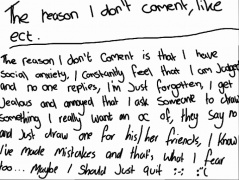 The reason I don't coment, like
ect.
The reason I don't Coment is that I have
social anxiety, I constantly feel that I am Judged
and no one replies, I'm Just forgotten, I get
Jealous and annoyed that I ask Someone to draw
something I really want an oc of, they say no
and Just draw one for his/her friends, I know
I've made mistakes and that's what I fear
too... Maybe I Should Just quit :-; :"(